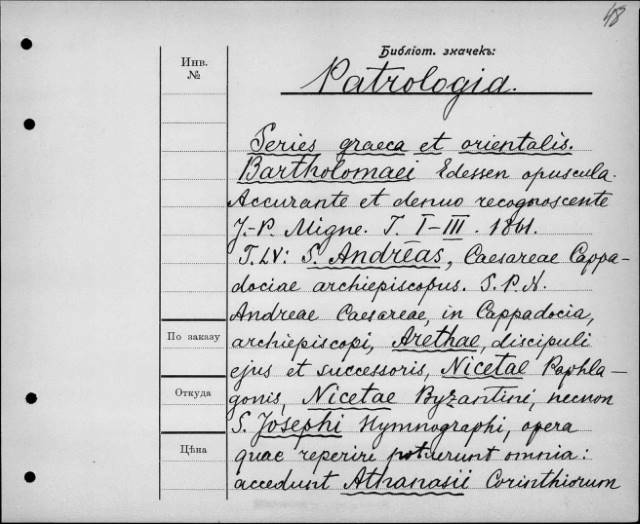 48
Библіот. значекъ:
Инв.
№
Patrologia.
Series graeca et orientalis.
Bartholomaei Edessen opuscula.
Accurante et denuo recognoscente
J.-P. Migne. T. I-III. 1861.
T. LV: S. Andreas, Caesareae Cappa-
dociae archiepiscopus. S. P. N.
Andreae Caesareae, in Cappadocia,
По заказу
archiepiscopi, Arethae, discipuli
ejus et successoris, Nicetae Paphla-
Откуда
gonis, Nicetae Byzantini, necnon
S. Josephi Hymnographi, opera
Цѣна
quae reperiri potuerunt omnia:
accedunt Athanasii Corinthiorum